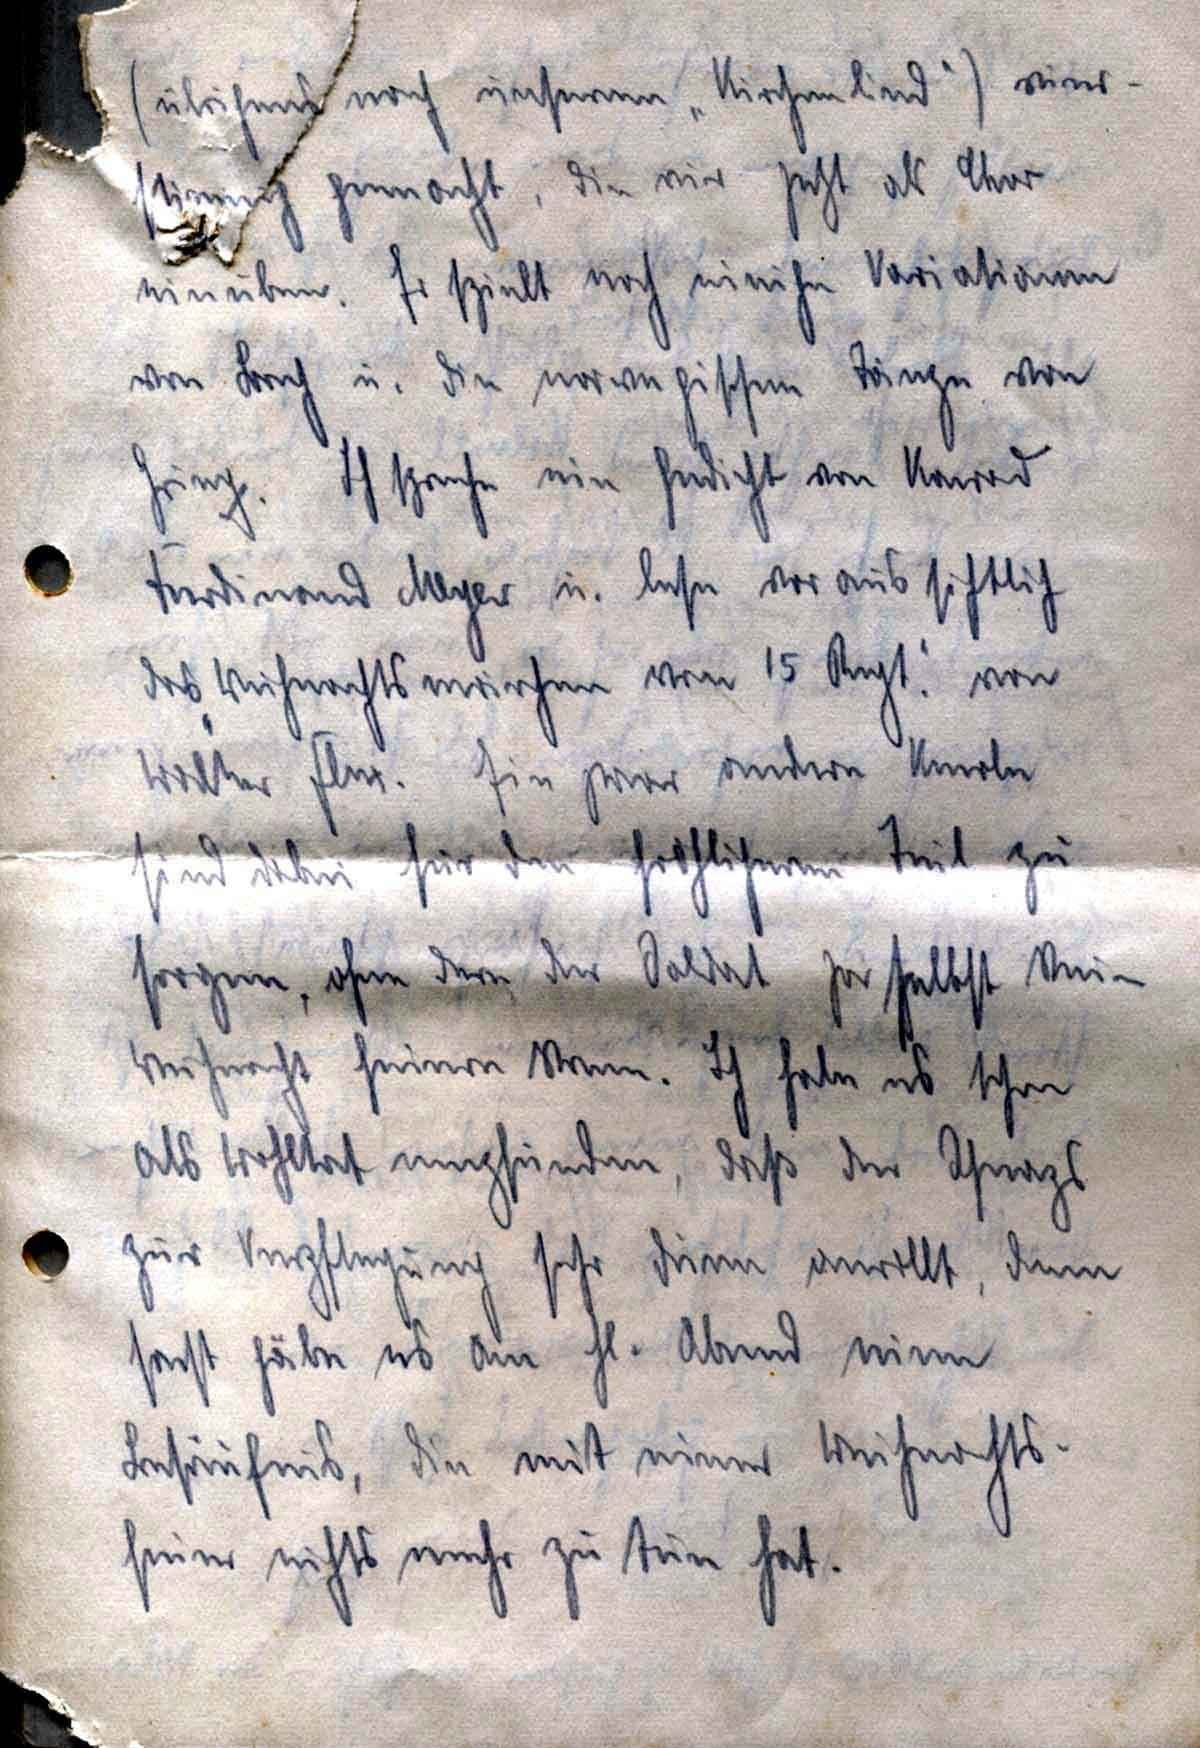 (übrigens nach unserem „Kirchenlied") vier-
stimmig gemacht, die wir jetzt als Chor
einüben. Er spielt noch einige Variationen
von Bach u. die norwegischen Tänze von
Grieg. Ich spreche ein Gedicht von Konrad
Ferdinand Meyer u. lese voraussichtlich
das „Weihnachtsmärchen vom 15 Regt." von
Walter Flex. Ein paar andere Kerle
sind dabei für den fröhlicheren Teil zu
sorgen, ohne dem der Soldat ja selbst
Weihnacht feiern kann. Ich habe es schon
als Wohltat empfunden, daß der Schnaps
zur Verpflegung sehr dünn anrollt, denn
sonst gäbe es am hl. Abend eine
Besäufnis, die mit einer Weihnachts-
feier nichts mehr zu tun hat.